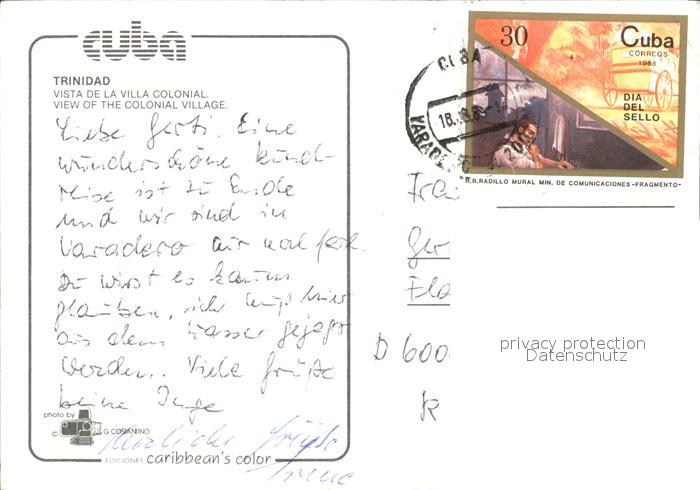 cuba
TRINIDAD
VISTA DE LA VILLA COLONIAL.
VIEW OF THE COLONIAL VILLAGE.
Liebe Gerti. Eine
wunderschöne Rund-
reise ist zu Ende
und wir sind in
Varadero
Du wirst es kaum
glauben, ich muß hier
aus dem Wasser gejagt
werden. Viele Grüße
deine Inge
photo by
© G COSANTINO
Herzliche Grüße
Irene
EDICIONES caribbean's color
30 Cuba
CORREOS
1988
DIA
DEL
SELLO
R.R.RADILLO MURAL MIN. DE COMUNICACIONES-FRAGMENTO-
CUBA
VARADERO
Ger
D 600
privacy protection
Datenschutz